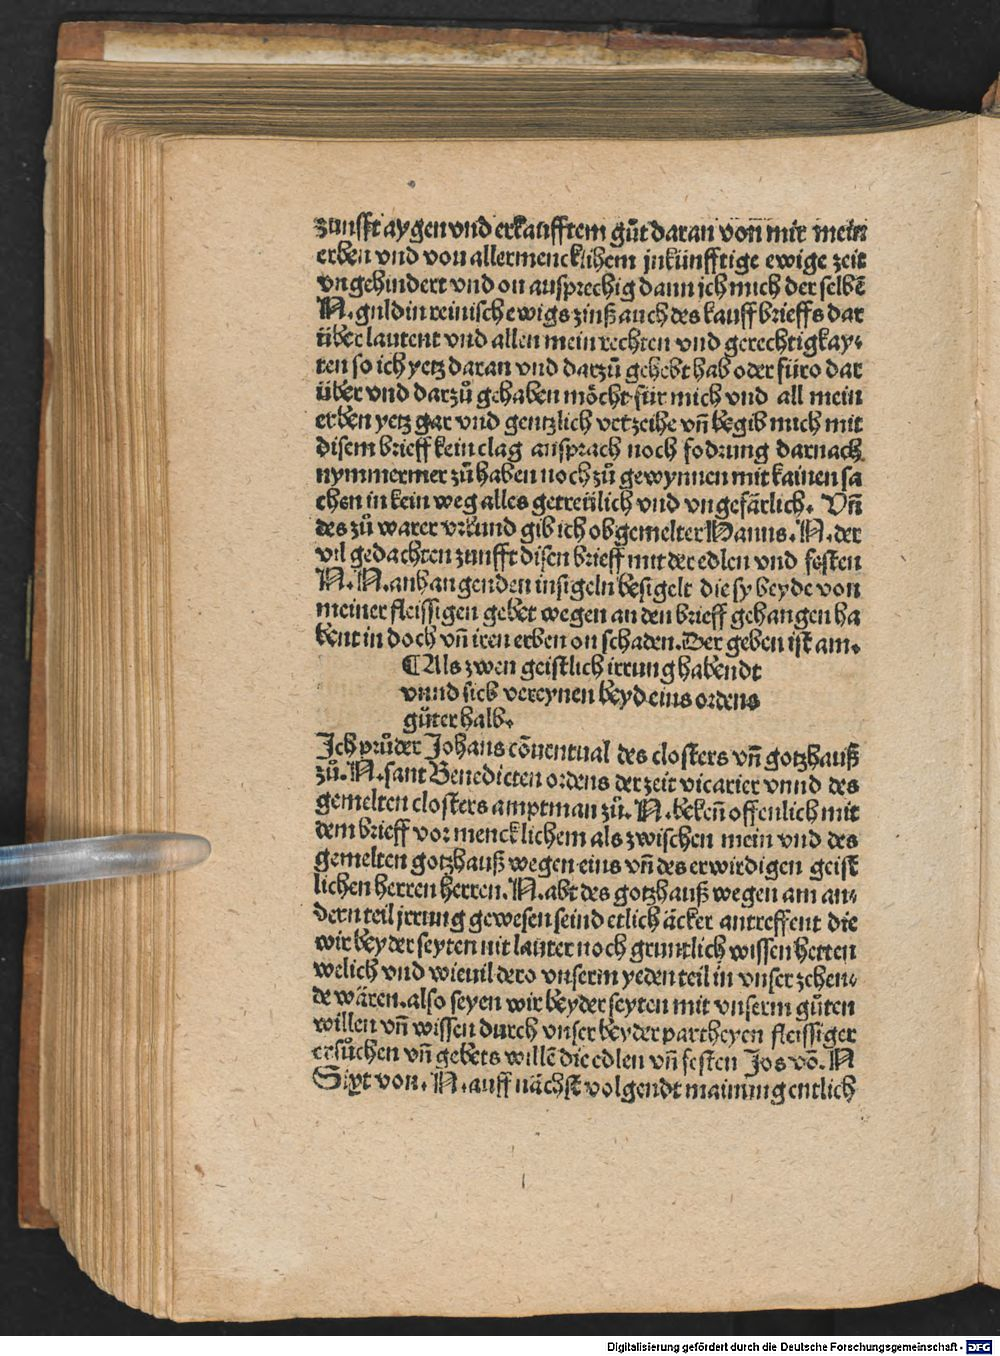 zunfft aygen vnd erkaufftem gůt daran von mir mein
erben vnd von allermencklichem jnkünfftige ewige zeit
vngehindert vnd on ansprechig dann jch mich der selbē
N. guldin reinisch ewigs zinß auch des kauff brieffs dar
über lautent vnd allen mein rechten vnd gerechtigkay⸗
ten so ich yetz daran vnd darzů gehebt hab oder füro dar
über vnd darzů gehaben möcht für mich vnd all mein
erben yetz gar vnd gentzlich vertzeihe vñ begib mich mit
disem brieff kein clag ansprach noch fodrung darnach
nymmermer zů haben noch zů gewynnen mit kainen sa
chen in kein weg alles getreülich vnd vngefärlich. Vñ
des zů warer vrkund gib ich obgemelter Hanns. N. der
vil gedachten zunfft disen brieff mit der edlen vnd festen
N. N. anhangenden insigeln besigelt die sy beyde von
meiner fleissigen gebet wegen an den brieff gehangen ha
bent in doch vñ iren erben on schaden. Der geben ist am.
¶ Als zwen geistlich irrung habendt
vnnd sich vereynen beyd eins ordens
gůter halb.
Ich průder Johans cōuentual des closters vñ gotzhauß
zů. N. sant Benedicten ordens der zeit vicarier vnnd des
gemelten closters amptman zů. N. bekeñ offenlich mit
dem brieff vor mencklichem als zwischen mein vnd des
gemelten gotzhauß wegen eins vñ des erwirdigen geist
lichen herren herren. N. abt des gotzhauß wegen am an⸗
dern teil jrrung gewesen seind etlich äcker antreffent die
wir beyder seyten nit lauter noch gruntlich wissen herten
welich vnd wieuil dero vnserm yeden teil in vnser zehen⸗
de wären. also seyen wir beyder seyten mit vnserm gůten
willen vñ wissen durch vnser beyder partheyen fleissiger
ersůchen vñ gebets willē die edlen vñ festen Jos vō. N
Sixt von. N. auff nächst volgendt mainung entlich
Digitalisierung gefördert durch die Deutsche Forschungsgemeinschaft - DFG